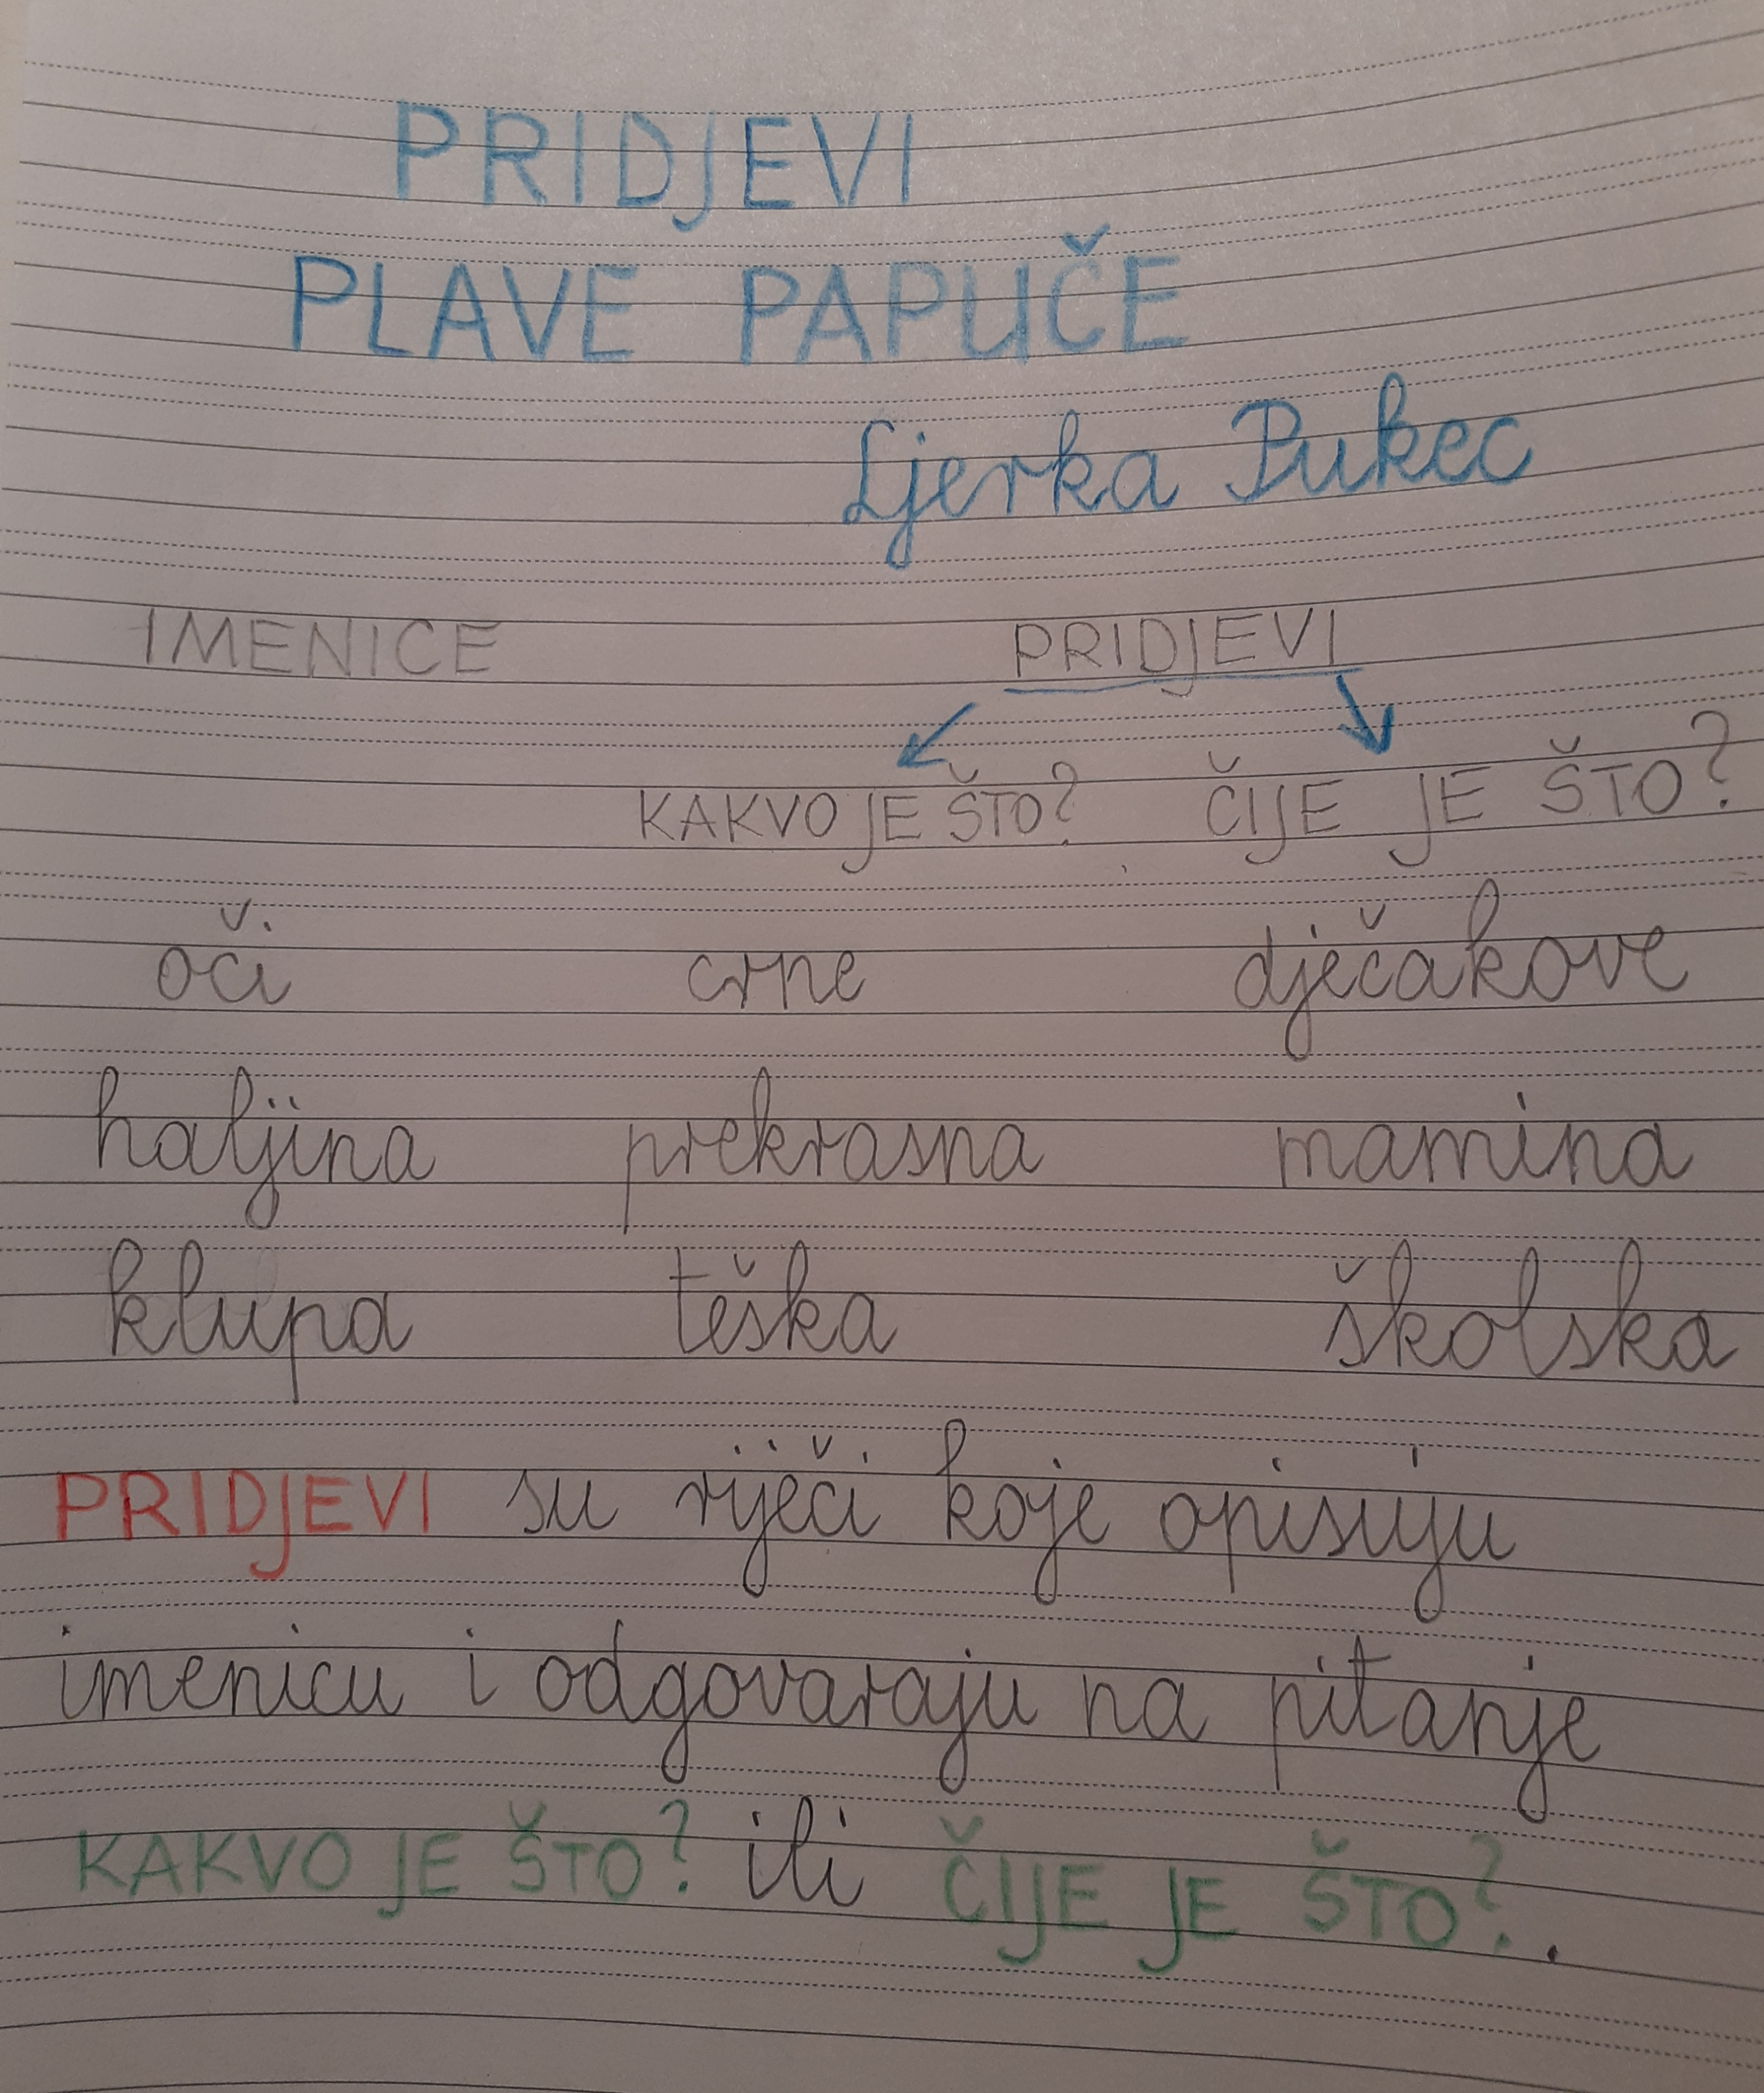 PRIDJEVI
PLAVE PAPUČE
Ljerka Pukec
IMENICE PRIDJEVI
KAKVO JE ŠTO? ČIJE JE ŠTO?
oči crne dječakove
haljina prekrasna mamina
klupa teška školska
PRIDJEVI su riječi koje opisuju
imenicu i odgovaraju na pitanje
KAKVO JE ŠTO? ili ČIJE JE ŠTO?.